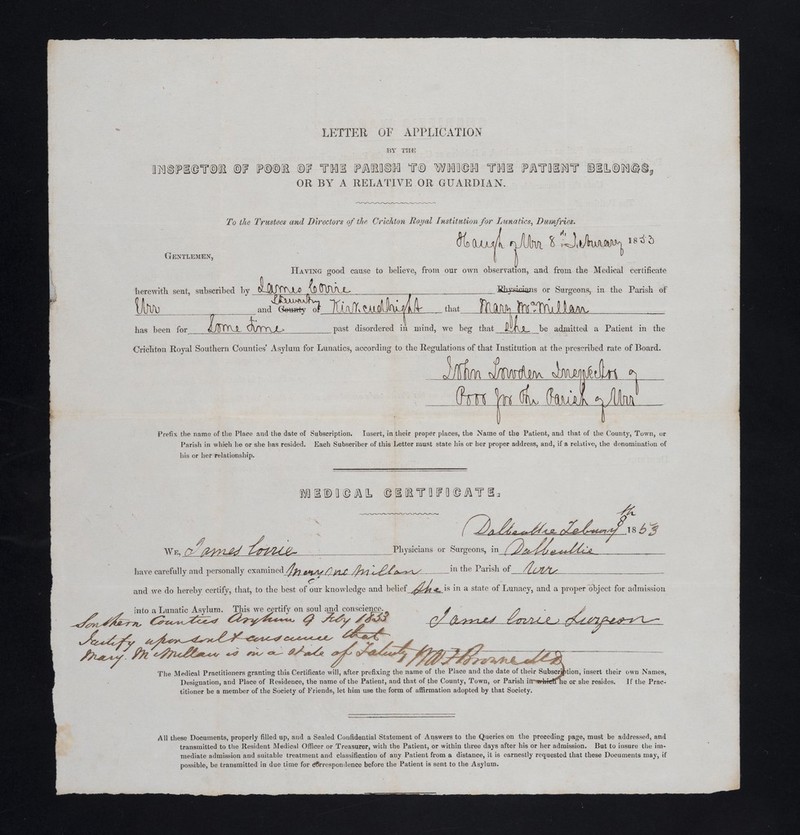 LETTER OF APPLICATION
BY THE
INSPECTOR OF POOR OF THE PARISH TO WHICH THE PATIENT BELONGS,
OR BY A RELATIVE OR GUARDIAN.
To the Trustees and Directors of the Crichton Royal Institution for Lunatics, Dumfries.
Haugh of Urr 8th February 1853
GENTLEMEN,
HAVING good cause to believe, from our own observation, and from the Medical certificate
herewith sent, subscribed by James Corrie Physicians or Surgeons, in the Parish of
Stewartry
Urr and County of Kirkcudbright that Mary McMillan
has been for Some time past disordered in mind, we beg that She be admitted a Patient in the
Crichton Royal Southern Counties' Asylum for Lunatics, according to the Regulations of that Institution at the prescribed rate of Board.
John Lowden Inspector of
Poor for the Parish of Urr
Prefix the name of the Place and the date of Subscription. Insert, in their proper places, the Name of the Patient, and that of the County, Town, or
Parish in which he or she has resided. Each Subscriber of this Letter must state his or her proper address, and, if a relative, the denomination of
his or her relationship.
MEDICAL CERTIFICATE.
Dalbeattie February 8th 1853
WE, James Corrie Physicians or Surgeons, in Dalbeattie
have carefully and personally examined Mary McMillan in the Parish of Urr
and we do hereby certify, that, to the best of our knowledge and belief She is in a state of Lunacy, and a proper object for admission
into a Lunatic Asylum. This we certify on soul and conscience.
James Corrie Surgeon
Southern Counties Asylum 9 Feby 1853
I certify upon soul & conscience that
Mary McMillan is in a state of Fatuity W A F Browne
The Medical Practitioners granting this Certificate will, after prefixing the name of the Place and the date of their Subscription, insert their own Names,
Designation, and Place of Residence, the name of the Patient, and that of the County, Town, or Parish in which he or she resides. If the Prac-
titioner be a member of the Society of Friends, let him use the form of affirmation adopted by that Society.
All these Documents, properly filled up, and a Sealed Confidential Statement of Answers to the Queries on the preceding page, must be addressed, and
transmitted to the Resident Medical Officer or Treasurer, with the Patient, or within three days after his or her admission. But to insure the im-
mediate admission and suitable treatment and classification of any Patient from a distance, it is earnestly requested that these Documents may, if
possible, be transmitted in due time for correspondence before the Patient is sent to the Asylum.